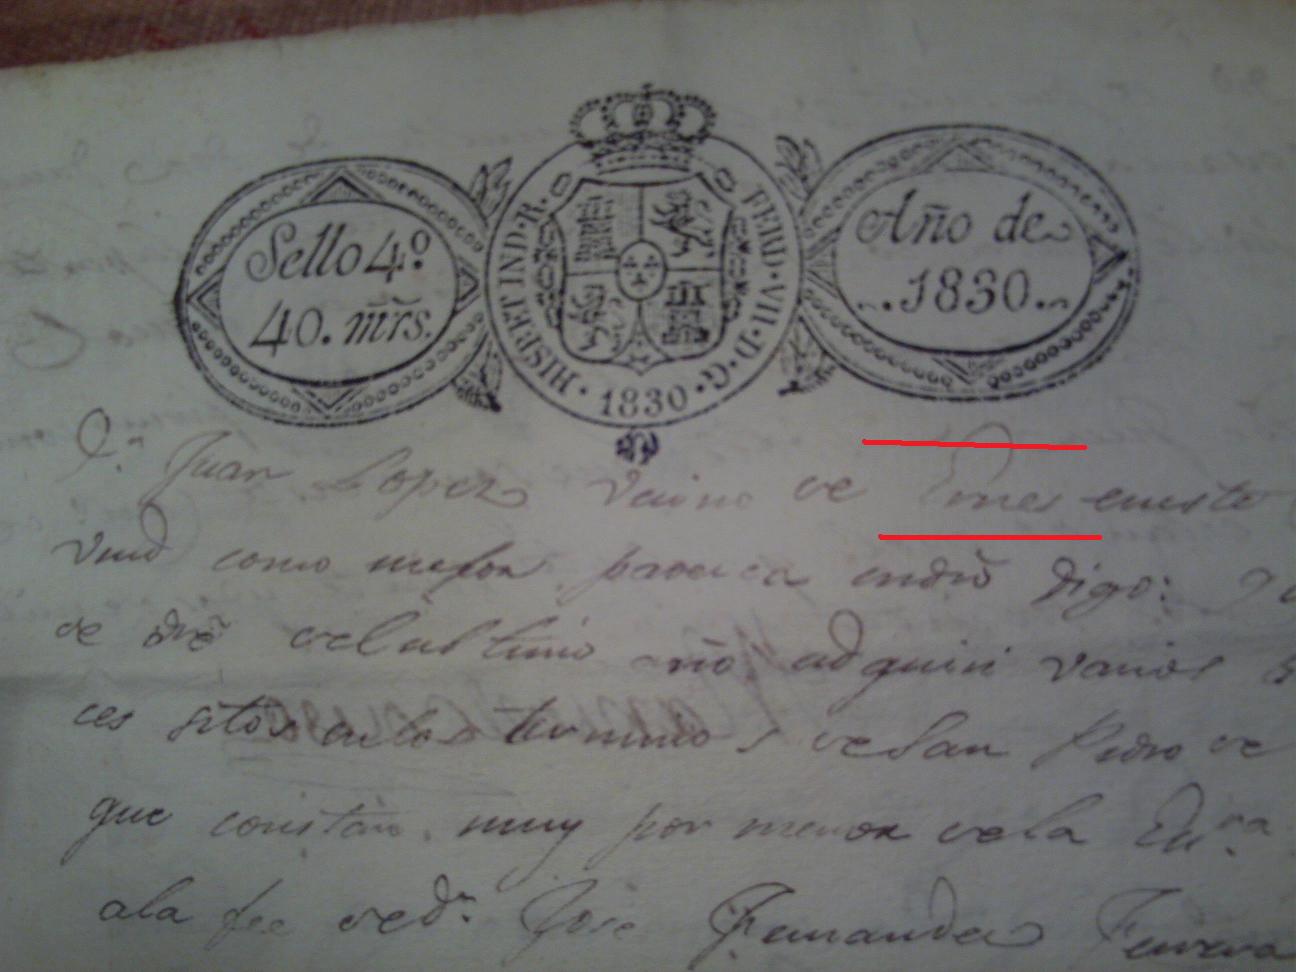 Sello 4º
40. mrs.
HISP.ET IND.R. FERD.VII.D.G. 1830
Año de
1830.
Dn. Juan Lopez vecino de eneste
Vmd como mejor proceda endro digo:
de dho delultimo año adquiri varios
ces sitos enlos terminos deSan Pedro de
que constan muy por menor dela
ala fee dedn. José Fernandez Ferreria